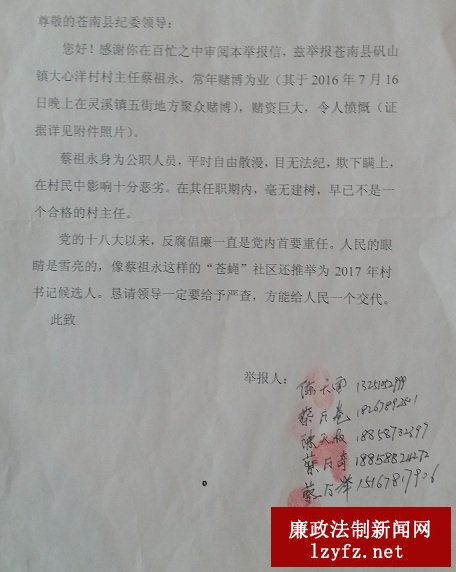 尊敬的苍南县纪委领导：
您好！感谢你在百忙之中审阅本举报信，兹举报苍南县矾山
镇大心洋村村主任蔡祖永，常年赌博为业（其于 2016 年 7 月 16
日晚上在灵溪镇五街地方聚众赌博），赌资巨大，令人愤慨（证
据详见附件照片）。
蔡祖永身为公职人员，平时自由散漫，目无法纪，欺下瞒上，
在村民中影响十分恶劣。在其任职期内，毫无建树，早已不是一
个合格的村主任。
党的十八大以来，反腐倡廉一直是党内首要重任。人民的眼
睛是雪亮的，像蔡祖永这样的“苍蝇”社区还推举为 2017 年村
书记候选人。恳请领导一定要给予严查，方能给人民一个交代。
此致
举报人：
廉政法制新闻网
lzyfz.net